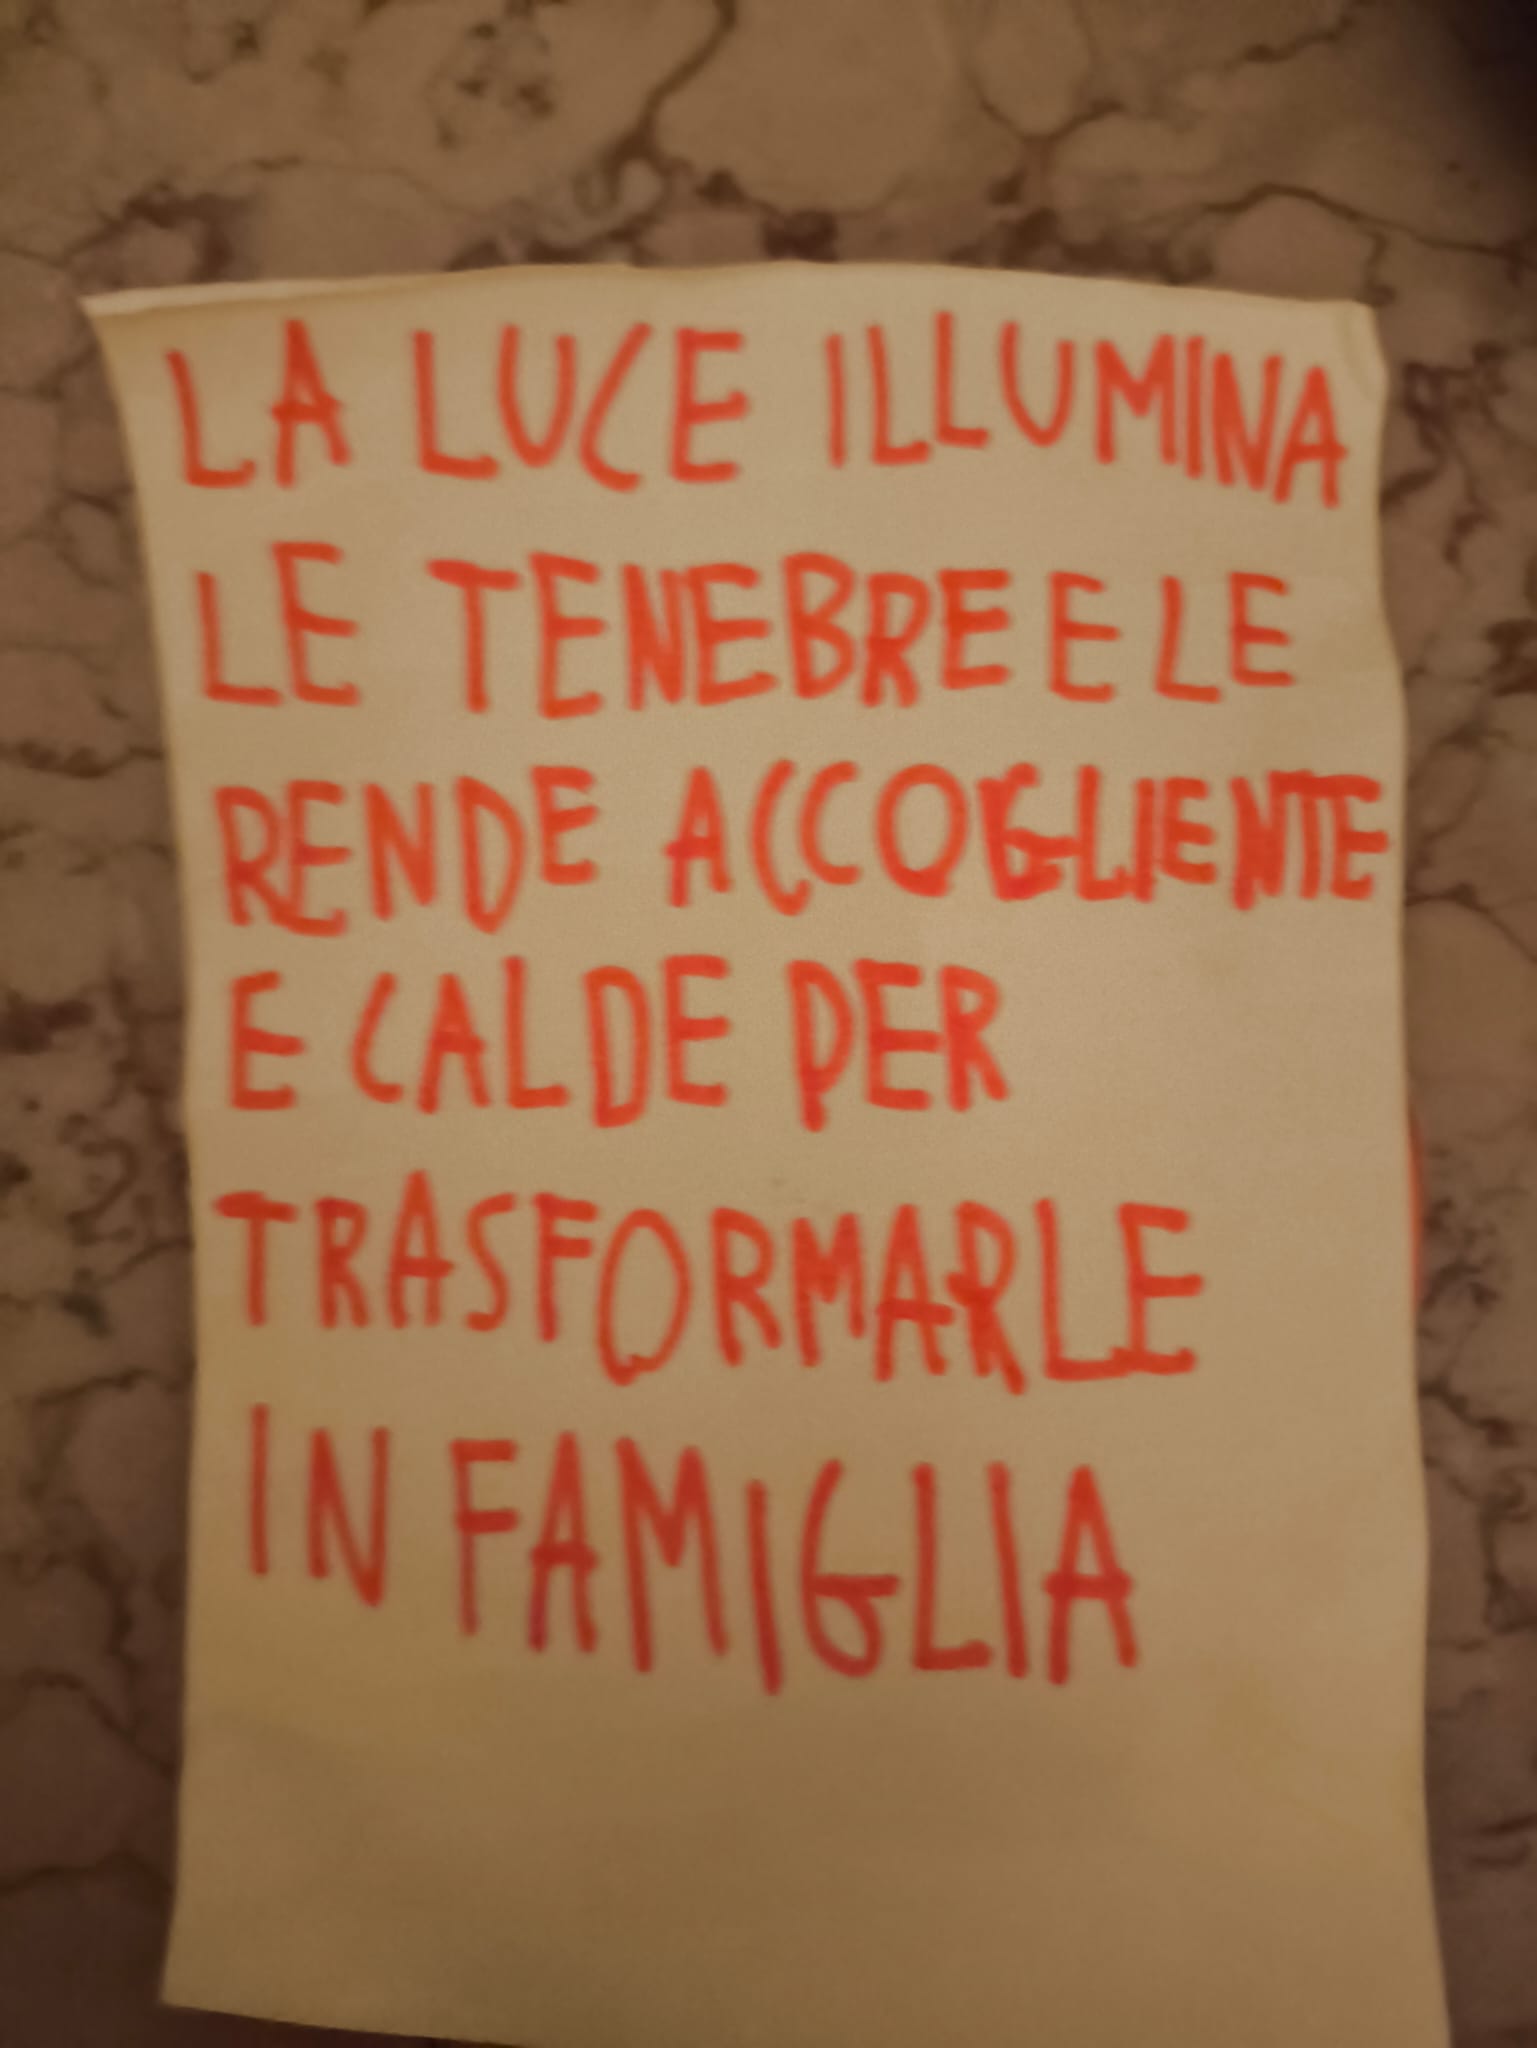 LA LUCE ILLUMINA
LE TENEBRE E LE
RENDE ACCOGLIENTE
E CALDE PER
TRASFORMARLE
IN FAMIGLIA